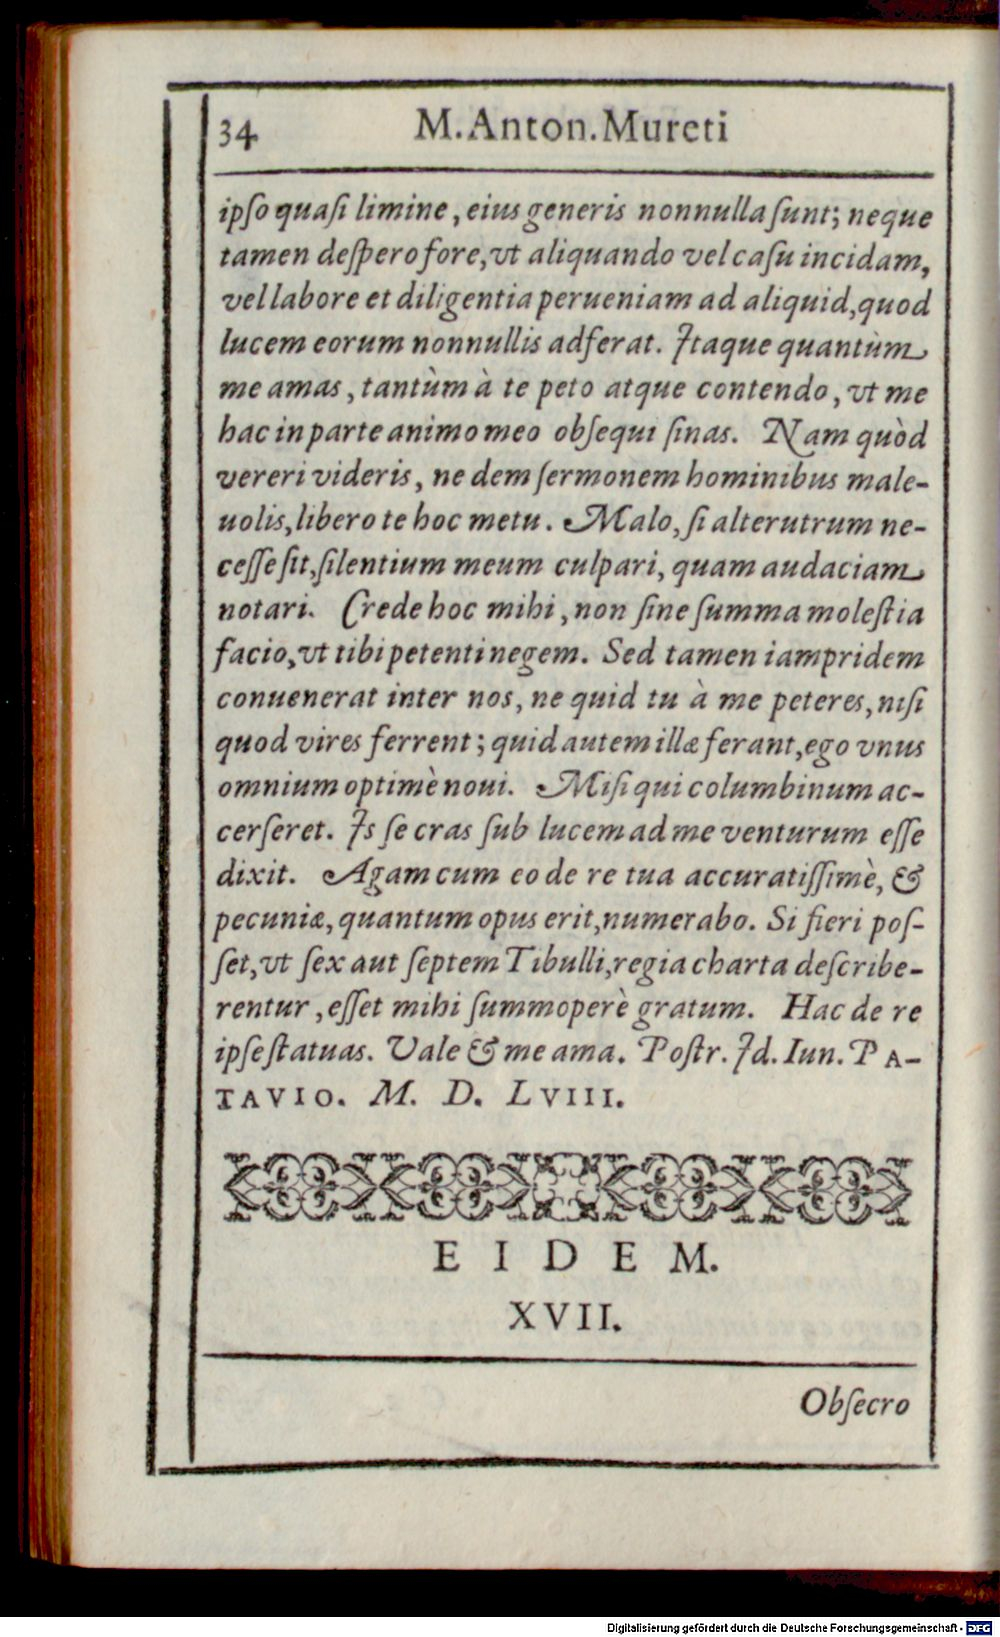 34 M. Anton. Mureti
ipſo quaſi limine, eius generis nonnulla ſunt; neque
tamen deſpero fore, vt aliquando vel caſu incidam,
vel labore et diligentia perueniam ad aliquid, quod
lucem eorum nonnullis adferat. Itaque quantùm
me amas, tantùm à te peto atque contendo, vt me
hac in parte animo meo obſequi ſinas. Nam quòd
vereri videris, ne dem ſermonem hominibus male-
uolis, libero te hoc metu. Malo, ſi alterutrum ne-
ceſſe ſit, ſilentium meum culpari, quam audaciam
notari. Crede hoc mihi, non ſine ſumma moleſtia
facio, vt tibi petenti negem. Sed tamen iampridem
conuenerat inter nos, ne quid tu à me peteres, niſi
quod vires ferrent; quid autem illæ ferant, ego vnus
omnium optimè noui. Miſi qui columbinum ac-
cerſeret. Is ſe cras ſub lucem ad me venturum eſſe
dixit. Agam cum eo de re tua accuratiſſimè, &
pecuniæ, quantum opus erit, numerabo. Si fieri poſ-
ſet, vt ſex aut ſeptem Tibulli, regia charta deſcribe-
rentur, eſſet mihi ſummoperè gratum. Hac de re
ipſe ſtatuas. Vale & me ama. Poſtr. Id. Iun. PA-
TAVIO. M. D. LVIII.
EIDEM.
XVII.
Obſecro
Digitalisierung gefördert durch die Deutsche Forschungsgemeinschaft - DFG